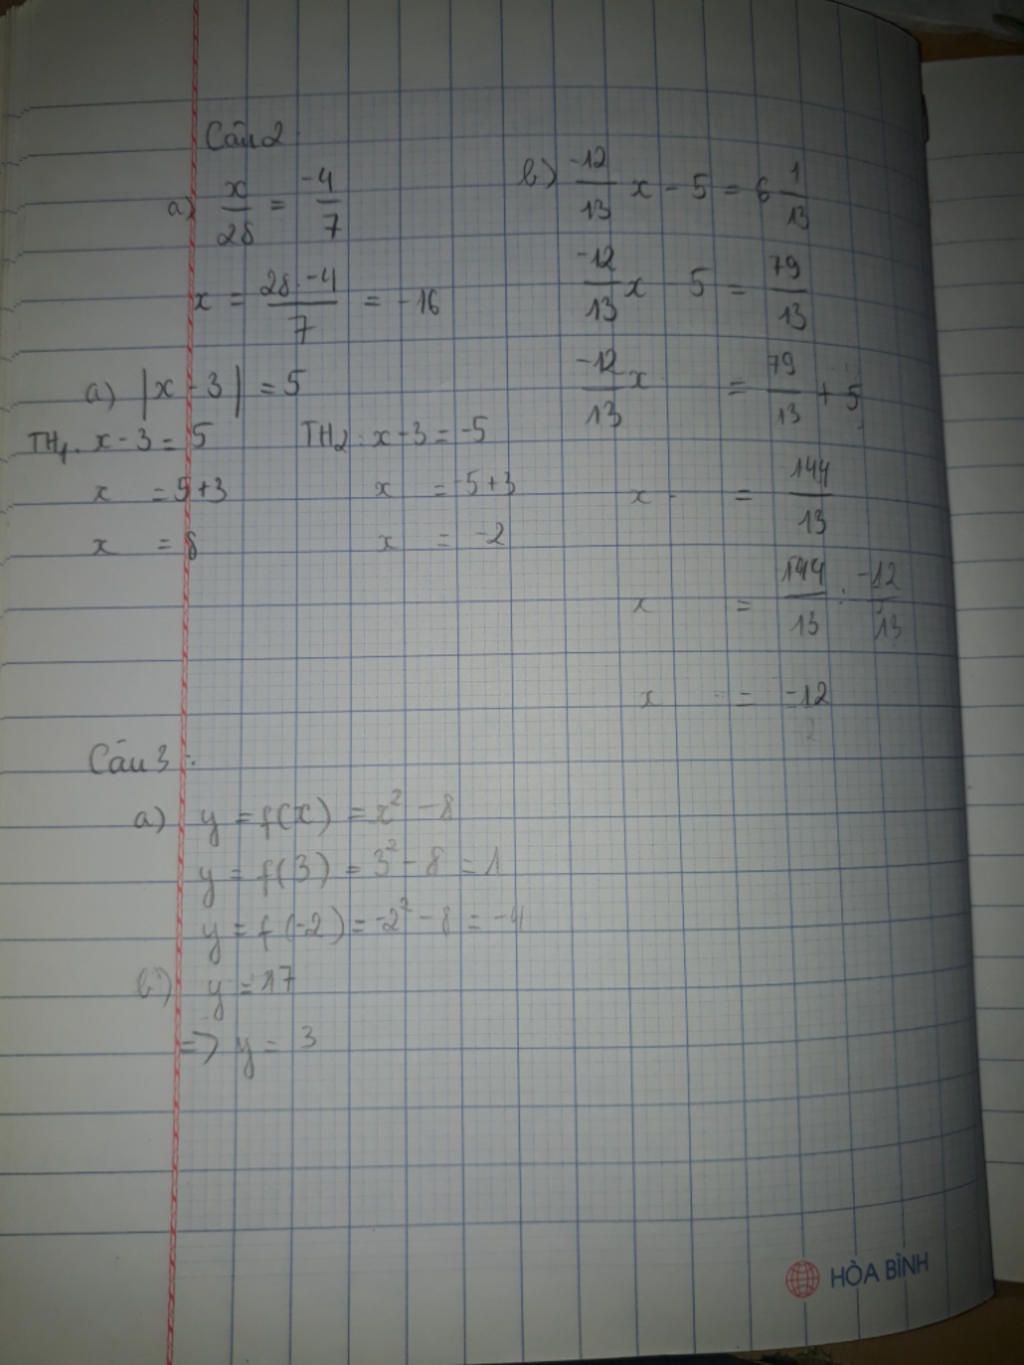 Câu 2:
a) x/28 = -4/7
x = 28.-4/7 = -16
a) |x - 3| = 5
TH1. x - 3 = 5 TH2: x - 3 = -5
x = 5+3 x = -5+3
x = 8 x = -2
b) -12/13 x - 5 = 6 1/13
-12/13 x 5 = 79/13
-12/13 x = 79/13 + 5
x = 144/13
x = 144/13 : -12/13
x = -12
Câu 3:
a) y = f(x) = x² - 8
y = f(3) = 3² - 8 = 1
y = f(-2) = -2² - 8 = -4
b) y = 17
=> y = 3
HÒA BÌNH